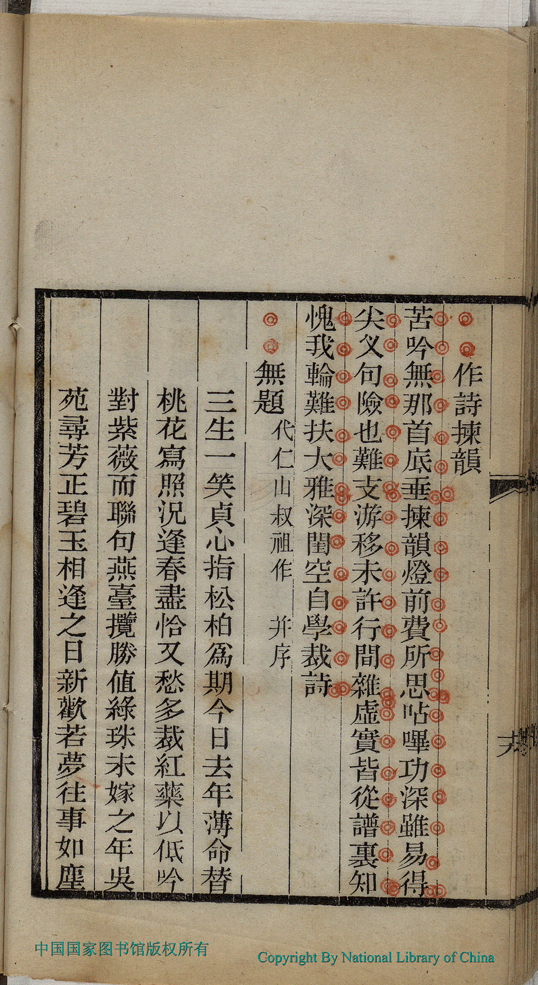 作詩揀韻
苦吟無那首底垂揀韻燈前費所思呫嗶功深雖易得
尖义句險也難支游移未許行間雜虛實皆從譜裏知
愧我輪難扶大雅深閨空自學裁詩
無題代仁山叔祖作 并序
三生一笑貞心指松柏爲期今日去年薄命替
桃花寫照況逢春盡恰又愁多裁紅藥以低吟
對紫薇而聯句燕臺攬勝値綠珠未嫁之年吳
苑尋芳正碧玉相逢之日新歡若夢往事如塵
中国国家图书馆版权所有
Copyright By National Library of China